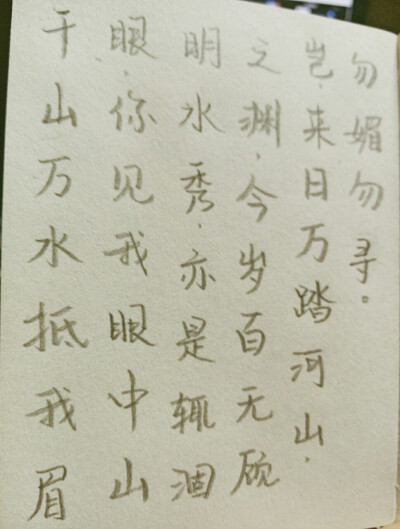 千山万水抵我眉
眼，你见我眼中山
明水秀，亦是辄涸
之渊，今岁百无顾
岂，来日万踏河山，
勿媚勿寻。